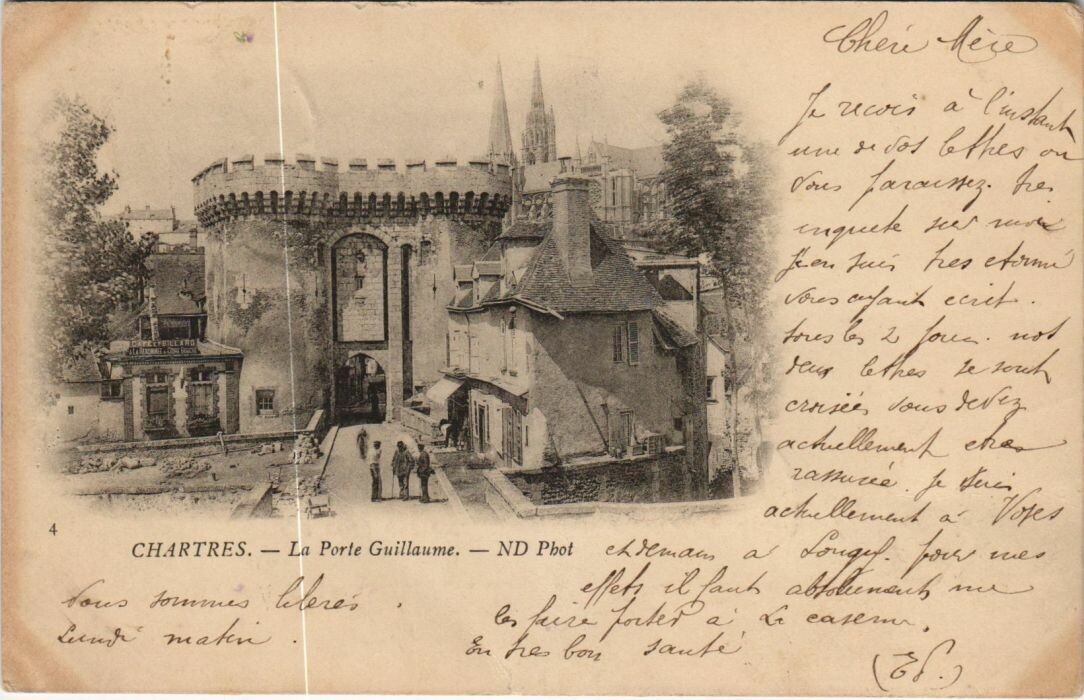 Chère Mère
Je recois à l'instant
une de vos lettres ou
vous paraissez tres
inquete sur moi
J'en suis tres etonné
vous ayant ecrit
tous les 2 jours. nos
deux lettres se sont
croisées vous devez
actuellement etre
rassurée. Je suis
actuellement à Voves
et demain a Longy. pour mes
effets il faut absolument me
les faire porter à la caserne.
En tres bon santé
(Ed.)
Nous sommes liberés
Lundi matin.
CAFÉ BILLARD
4
CHARTRES. — La Porte Guillaume. — ND Phot